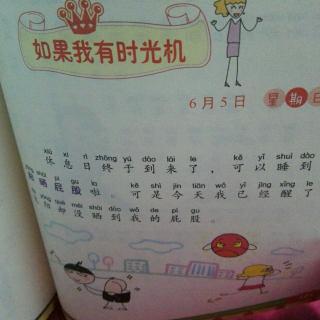 如果我有时光机
6月5日 星期日
xiū xi rì zhōng yú dào lái le kě yǐ shuì dào
休息日终于到来了,可以睡到
shài pì gu la kě shì jīn tiān wǒ yǐ jīng xǐng le
晒屁股啦。可是今天我已经醒了
què méi shài dào wǒ de pì gu
阳却没晒到我的屁股。